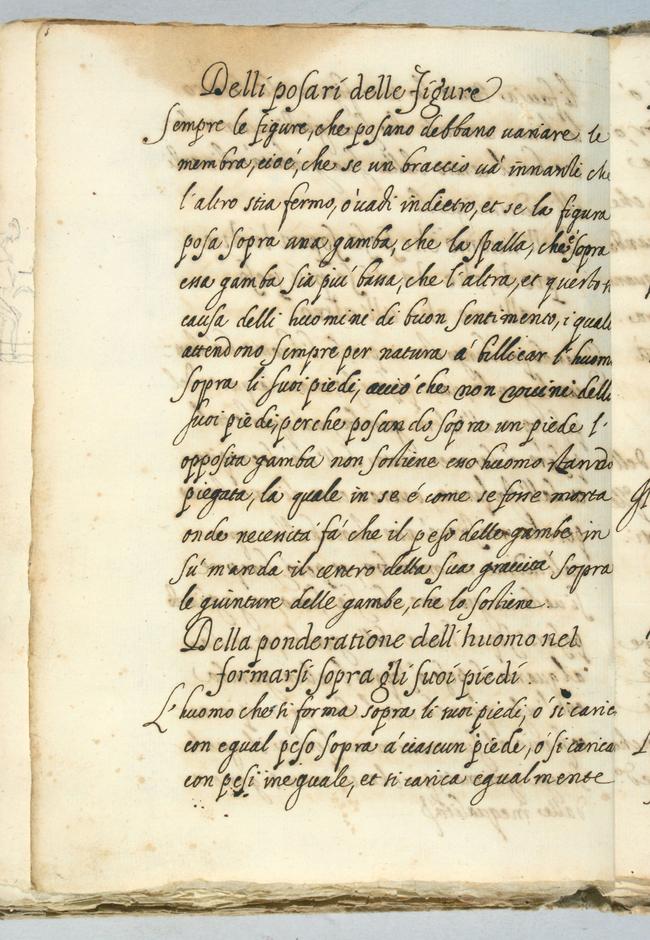 Delli posari delle figure
Sempre le figure, che posano debbano variare le
membra, cioé, che se un braccio uá innanti che
l'altro stia fermo, ó uadi indietro, et se la figura
posa sopra una gamba, che la spalla, che é sopra
essa gamba sia piú bassa, che l'altra, et questo
causa delli huomini di buon sentimento, i quali
attendono sempre per natura á billicar l'huom
sopra li suoi piedi, acció che non ruuini delli
suoi piedi, perche posando sopra un piede l'
opposita gamba non sostiene esso huomo stando
piegata, la quale in se é come se fosse morta
onde necessitá fá che il peso delle gambe in
sú manda il centro della sua grauitá sopra
le giunture delle gambe, che lo sostiene.
Della ponderatione dell'huomo nel
formarsi sopra gli suoi piedi.
L'huomo che si forma sopra li suoi piedi, ó si caric
con egual peso sopra á ciascun piede, ó si carica
con pesi ineguale, et si carica egualmente